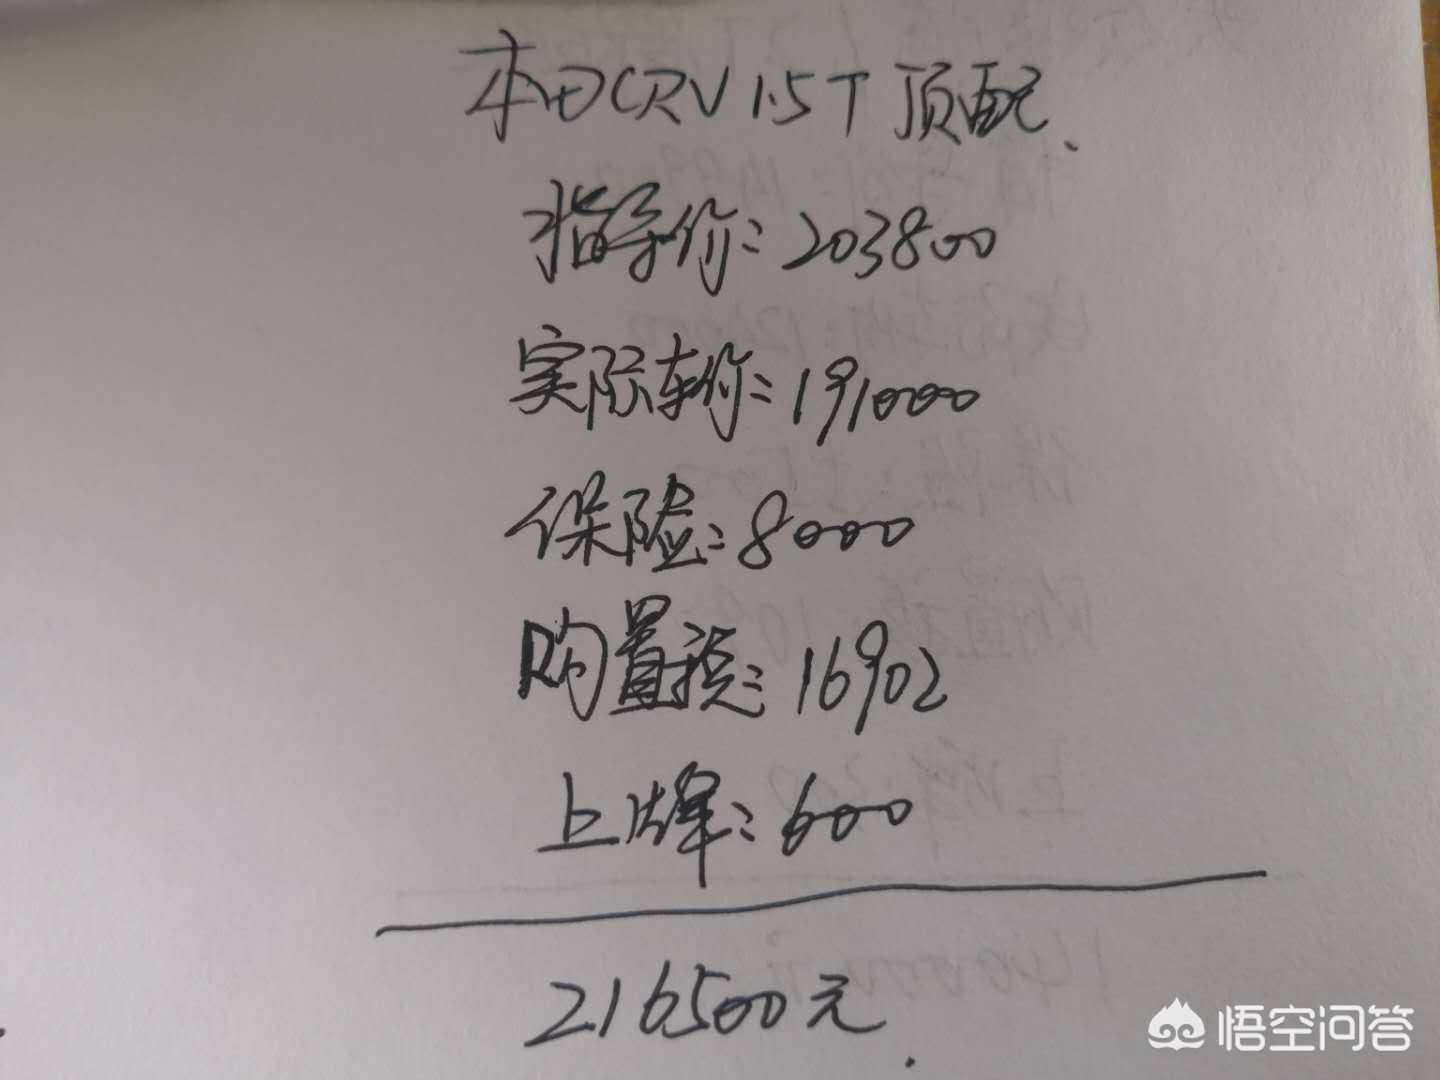 本田CRV 1.5T 顶配、
指导价：203800
实际车价：191000
保险：8000
购置税：16902
上牌：600
216500元.
悟空问答